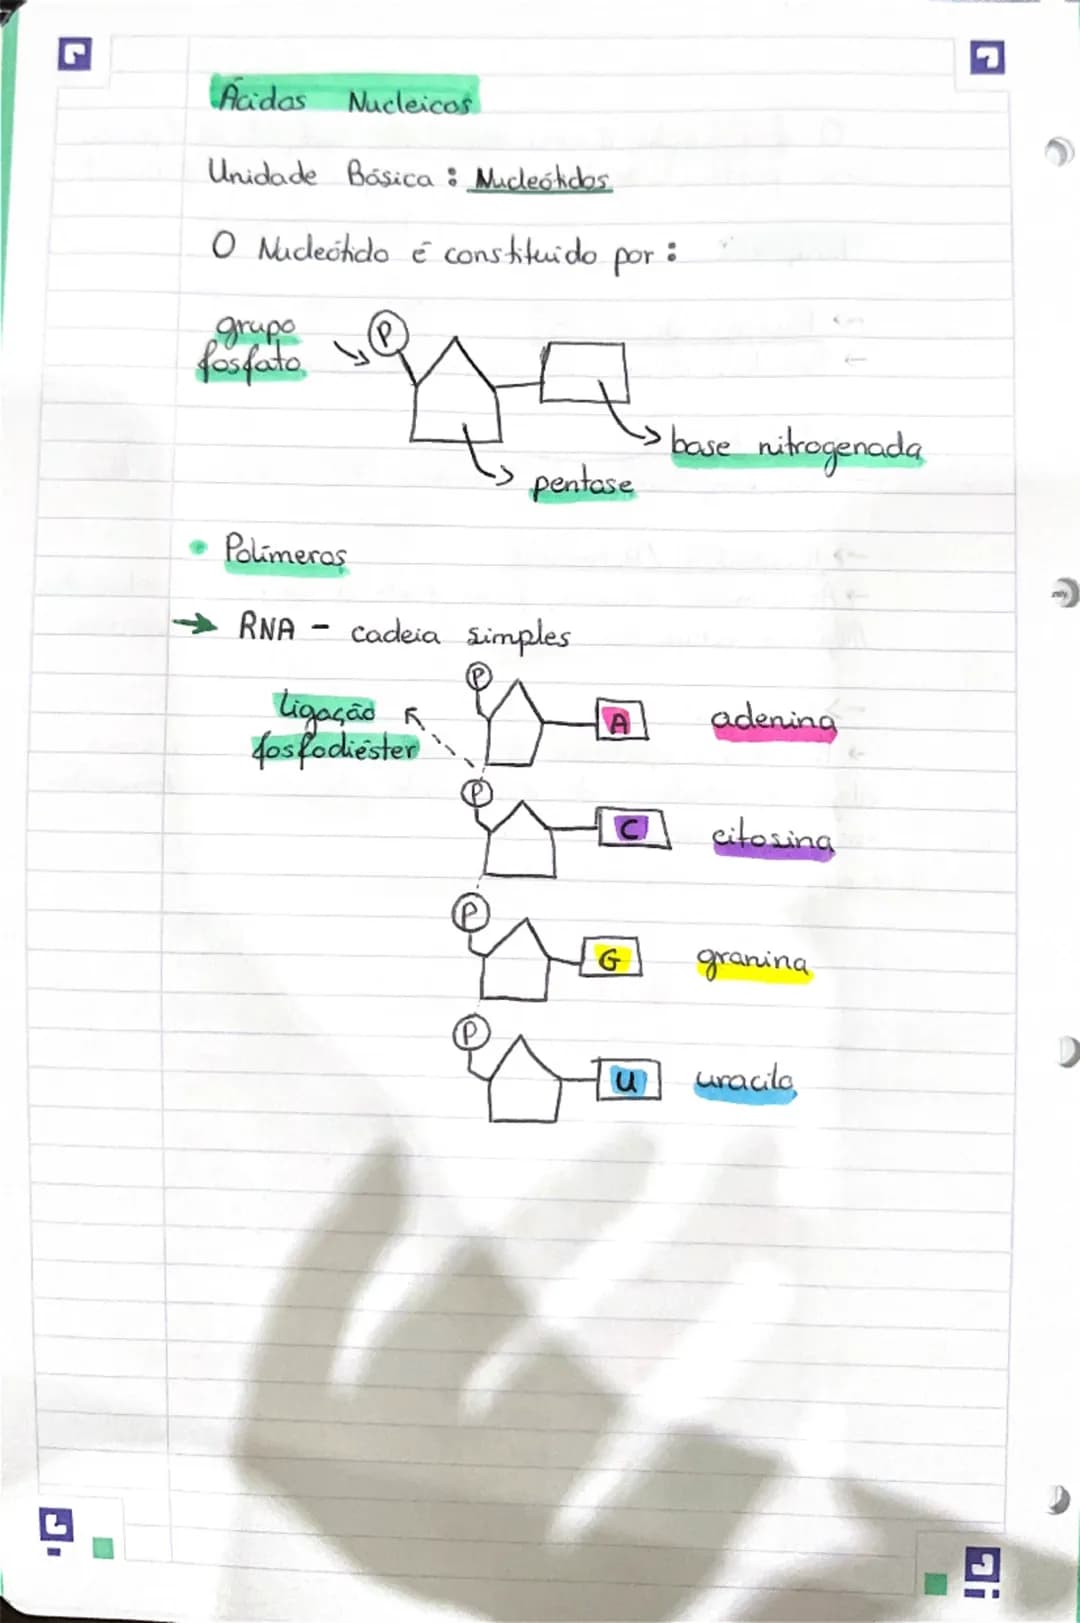 Ácidos Nucleicos
Unidade Básica : Nucleótidos
O Nucleótido é constituido por :
grupo
fosfato
P
base nitrogenada
pentose
• Polímeros
→ RNA - cadeia simples
P
Ligação
fosfodiéster
A adenina
P
C citosina
P
G granina
P
U uracilo